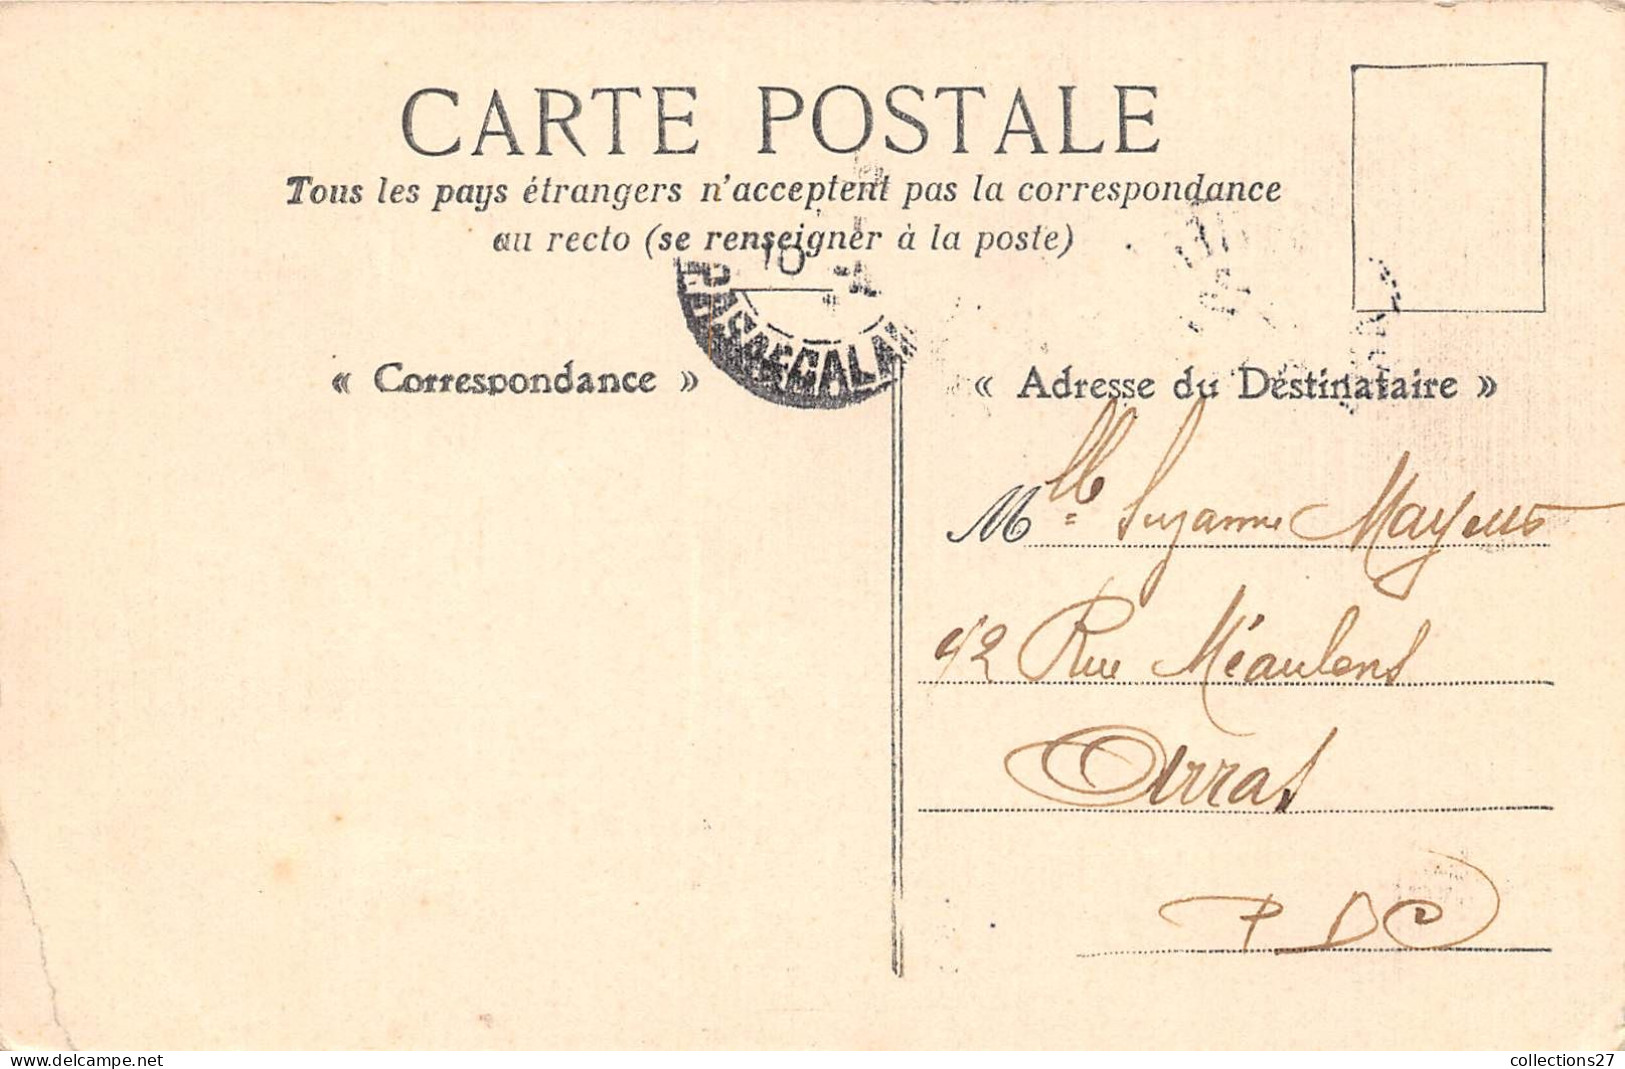 CARTE POSTALE
Tous les pays étrangers n'acceptent pas la correspondance
au recto (se renseigner à la poste)
10
PAS-DE-CALAIS
« Correspondance »
« Adresse du Destinataire »
Mlle Suzanne Mayeus
92 Rue Méaulens
Arras
P D C
collections27